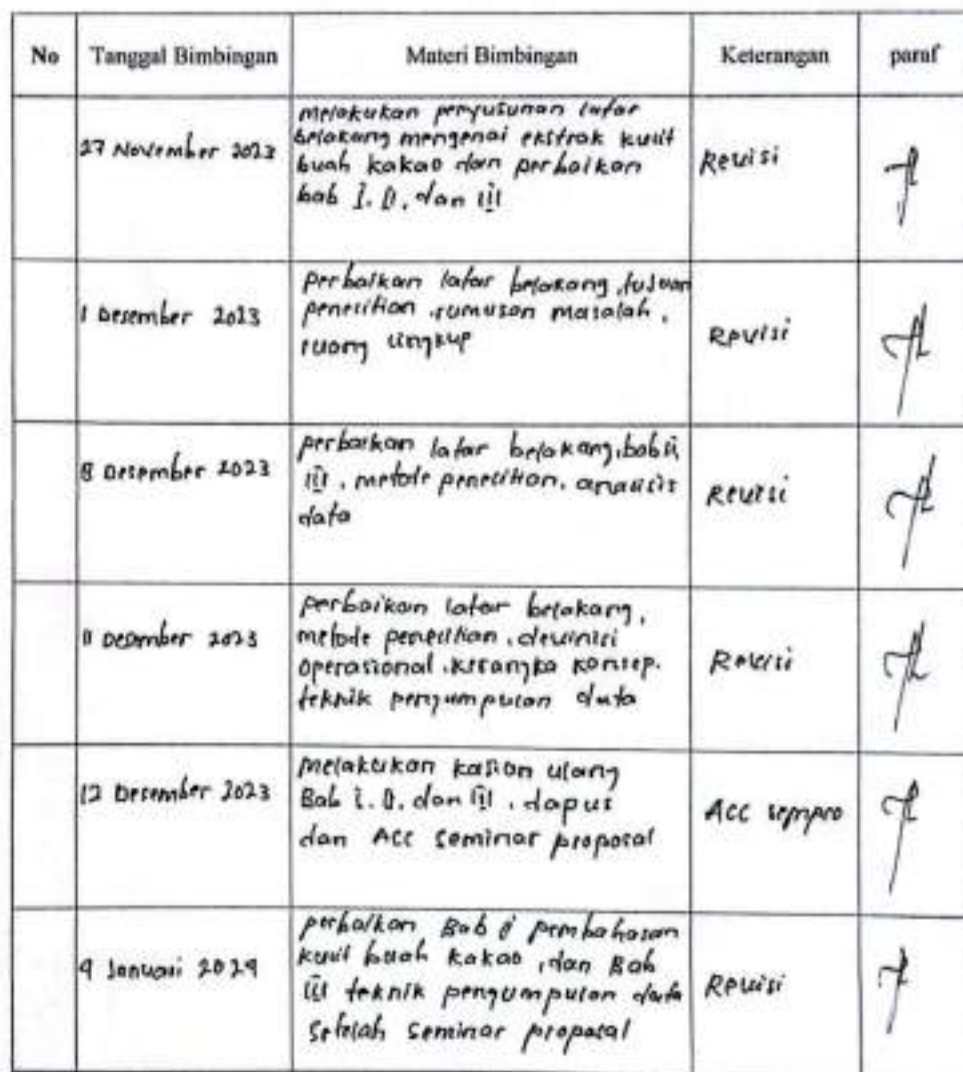 No Tanggal Bimbingan Materi Bimbingan Keterangan paraf
27 November 2023
melakukan penyusunan latar
belakang mengenai ekstrak kulit
buah kakao dan perbaikan
bab I. II. dan III
Revisi
1 Desember 2023
perbaikan latar belakang, tujuan
penelitian, rumusan masalah,
ruang lingkup
Revisi
8 Desember 2023
perbaikan latar belakang, bab II,
III, metode penelitian, analisis
data
Revisi
11 Desember 2023
perbaikan latar belakang,
metode penelitian, devinisi
operasional, kerangka konsep,
teknik pengumpulan data
Revisi
12 Desember 2023
melakukan kajian ulang
Bab I. II. dan III, dapus
dan Acc seminar proposal
Acc sempro
9 Januari 2024
perbaikan Bab pembahasan
kulit buah kakao, dan Bab
III teknik pengumpulan data
setelah seminar proposal
Revisi